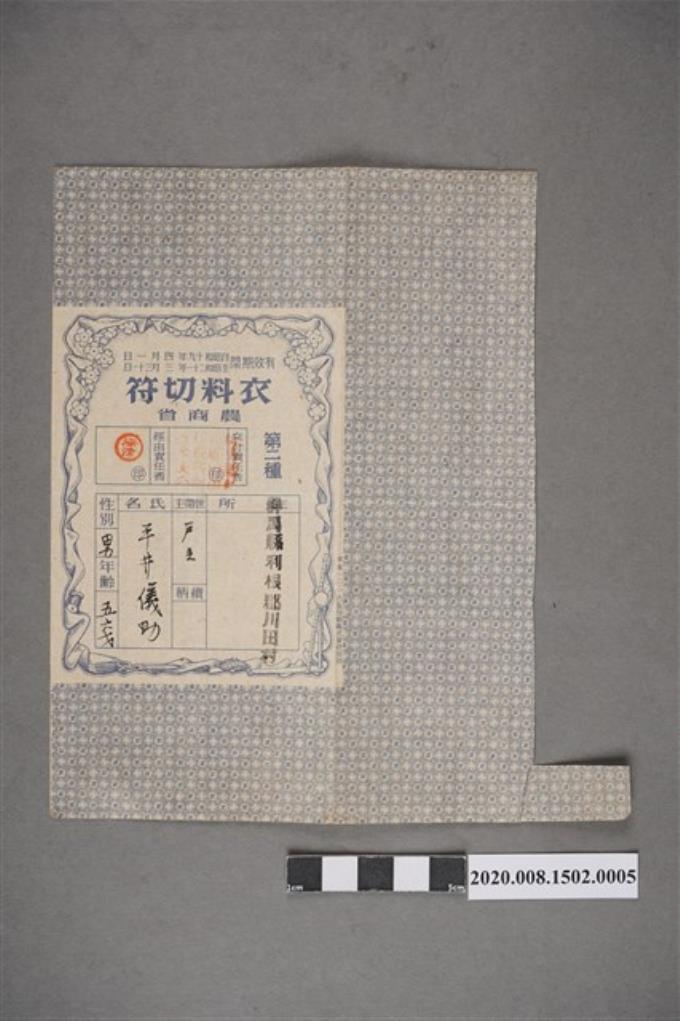 有效期間
自昭和十九年四月一日
至昭和二十一年三月三十一日
衣料切符
農商省
第二種
交付責任者
㊞
經由責任者
㊞
所
群馬縣利根郡川田村
世帶主
戸主
續柄
氏名
平井儀助
性別
男
年齡
五六才
1cm
5cm
2020.008.1502.0005